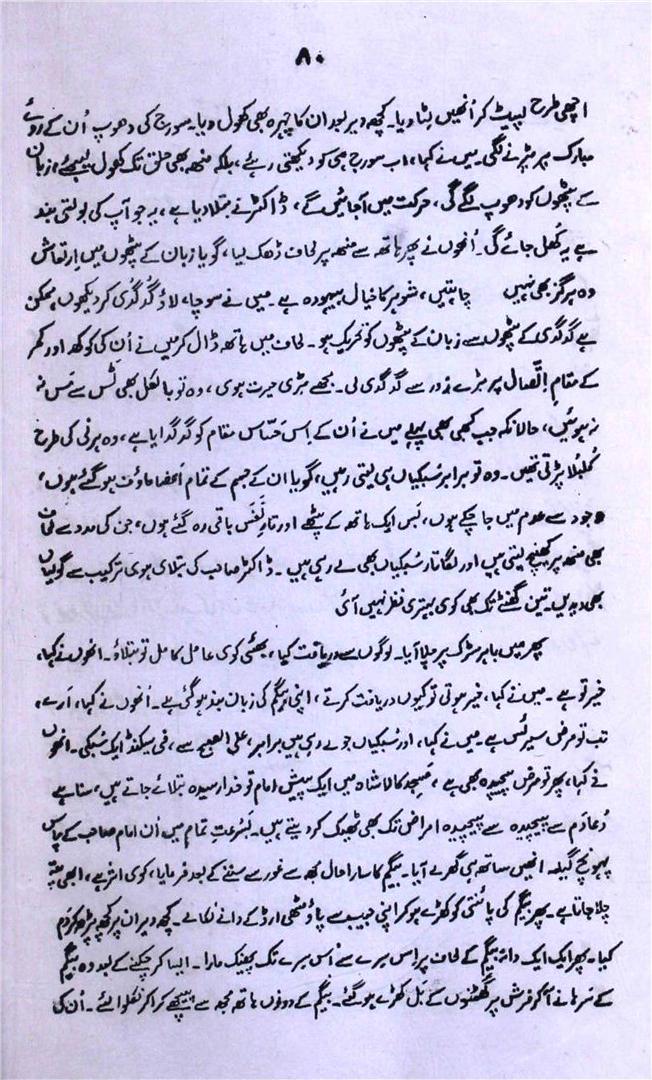 ۸۰
اچھی طرح لپیٹ کر اُنھیں لٹا دیا۔ کچھ دیر بعد ان کا چہرہ بھی کھول دیا۔ سورج کی دھوپ اُن کے روئے
مبارک پر پڑنے لگی۔ میں نے کہا، اب سورج ہی کو دیکھتی رہئے، بلکہ منھ بھی حلق تک کھول لیجئے، زبان
کے پٹھوں کو دھوپ لگے گی، حرکت میں آجائیں گے، ڈاکٹر نے بتلا دیا ہے، یہ جو آپ کی بولتی بند
ہے یہ کُھل جائے گی۔ اُنھوں نے پھر ہاتھ سے منھ پر لحاف ڈھک لیا، گویا زبان کے پٹھوں میں اِرتعاش
وہ ہرگز بھی نہیں چاہتیں، شوہر کا خیال بیہودہ ہے۔ میں نے سوچا، لاؤ گُدگُدی کر دیکھوں، ممکن
ہے گدگدی کے پٹھوں سے زبان کے پٹھوں کو تحریک ہو۔ لحاف میں ہاتھ ڈال کر میں نے اُن کی کوکھ اور کمر
کے مقامِ اتّصال پر بڑے زور سے گدگدی لی۔ مجھے بڑی حیرت ہوی، وہ تو بالکل بھی ٹس سے مَس نہ
نہ ہوئیں، حالانکہ جب کبھی بھی پہلے میں نے اُن کے اس حسّاس مقام کو گدگدایا ہے، وہ ہرنی کی طرح
کُلبُلا پڑتی تھیں۔ وہ تو برابر سُبکیاں ہی لیتی رہیں، گویا ان کے جسم کے تمام اَعضا ماؤف ہو گئے ہوں،
وجود سے عدم میں جا چکے ہوں، بَس ایک ہاتھ کے پٹھے اور تارِ نَفَس باقی رہ گئے ہوں، جن کی مدد سے لحاف
بھی منھ پر کھینچ لیتی ہیں اور لگاتار سُبکیاں بھی لے رہی ہیں۔ ڈاکٹر صاحب کی بتلای ہوی ترکیب سے گولیاں
بھی دیدیں، تین گھنٹے تک بھی کوی بہتری نظر نہیں آئی
پھر میں باہر سڑک پر چلا آیا۔ لوگوں سے دریافت کیا، بھئی کوی عامل کامل تو بتلاؤ۔ انھوں نے کہا،
خیر تو ہے۔ میں نے کہا، خیر ہوتی تو کیوں دریافت کرتے، اپنی بیگم کی زبان بند ہو گئی ہے۔ اُنھوں نے کہا، اَرے،
تب تو مرض سیرئس ہے۔ میں نے کہا، اور سُبکیاں جو لے رہی ہیں برابر، علی الصبح سے، فی سیکنڈ ایک سُبکی۔ انھوں
نے کہا، پھر تو مرض پیچیدہ بھی ہے، مسجد کالا شاہ میں ایک پیش امام تو خدا رسیدہ بتلائے جاتے ہیں، سنا ہے
دُعا دَم سے پیچیدہ سے پیچیدہ امراض تک بھی ٹھیک کر دیتے ہیں۔ بسُرعتِ تمام میں اُن امام صاحب کے پاس
پہونچ گیا۔ انھیں ساتھ ہی گھر لے آیا۔ بیگم کا سارا حال مجھ سے غور سے سننے کے بعد فرمایا، کوی اثر ہے، ابھی پتہ
چلا جاتا ہے۔ پھر بیگم کی پائنتی کو کھڑے ہو کر اپنی جیب سے پاؤ مٹھی اُرڈ کے دانے نکالے۔ کچھ دیر ان پر کچھ پڑھ کر دَم
کیا۔ پھر ایک ایک دانہ بیگم کے لحاف پر اِس سرے سے اُس سرے تک پھینک مارا۔ ایسا کر چکنے کے بعد وہ بیگم
کے سَرہانے آ کر فرش پر گُھٹنوں کے بَل کھڑے ہو گئے۔ بیگم کے دونوں ہاتھ مجھ سے اپیچھے کرا کر نکلوا لئے۔ اُن کی